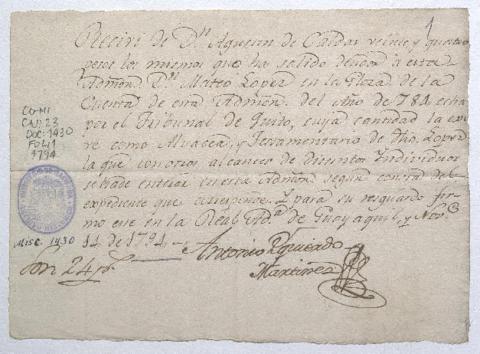 1
Recivi de Dn. Agustin de Caldas veinte y quatro
pesos los mismos que ha salido deudor a esta
Admon. Dn. Mateo Lopez en la Glosa de la
Cuenta de esta Admon. del año de 784 echa
por el Tribunal de Quito, cuya cantidad la
como Albacea, y Testamentario de dho. Lopez
la que con otros alcances de distintos Individuos
se ha de enterar en esta Admon. según consta del
expediente que corresponde. Y para su resguardo fir-
mo este en la Real Adn. de Guayaquil y Nove.
14 de 1794
Son 24 ps.
Antonio Izquierdo
Martinez
CO-MI
CAJ. 23
DOC. 1430
FOL. 1
1794
Misc. 1430